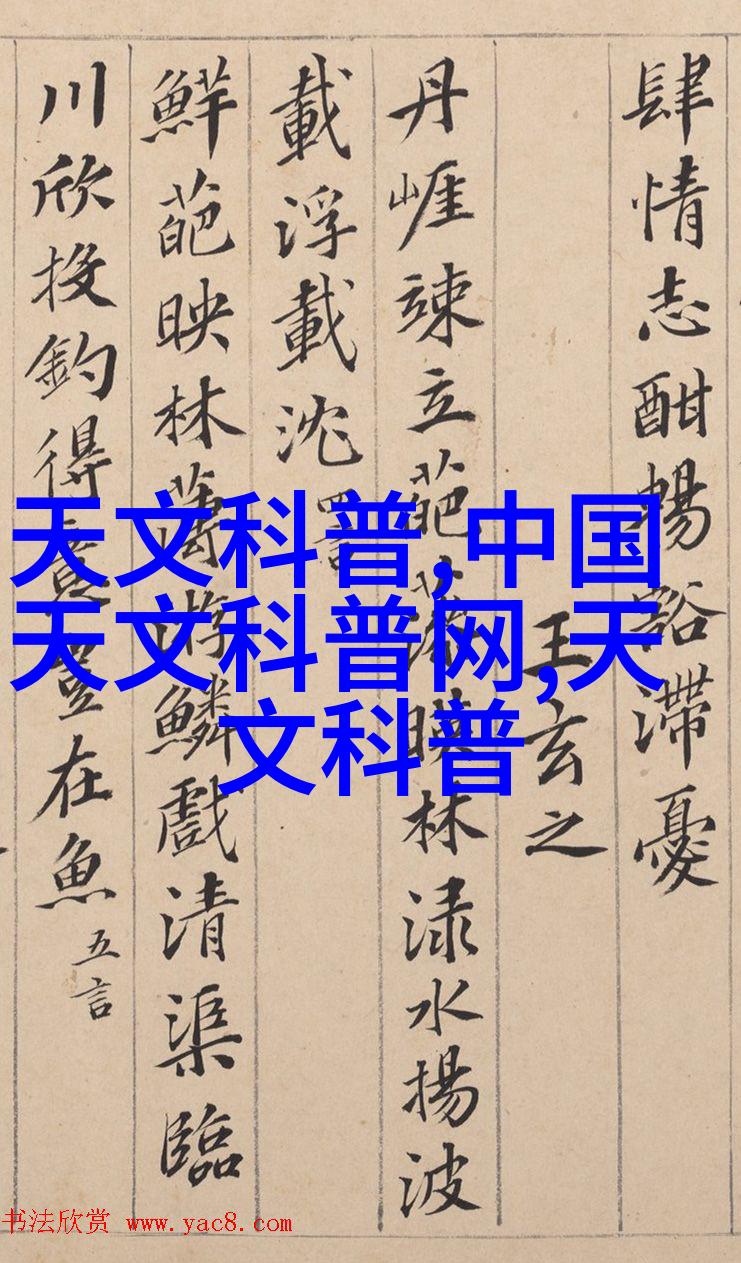 肆情志酣暢豁滯憂
王玄之
丹崕竦立葩藻暎林渌水揚波
載浮載沈 四言
鮮葩映林薄游鱗戲清渠臨
川欣投釣得意豈在魚 五言
天文科普,中国
天文科普网,天
文科普
书法欣赏 www.yac8.com